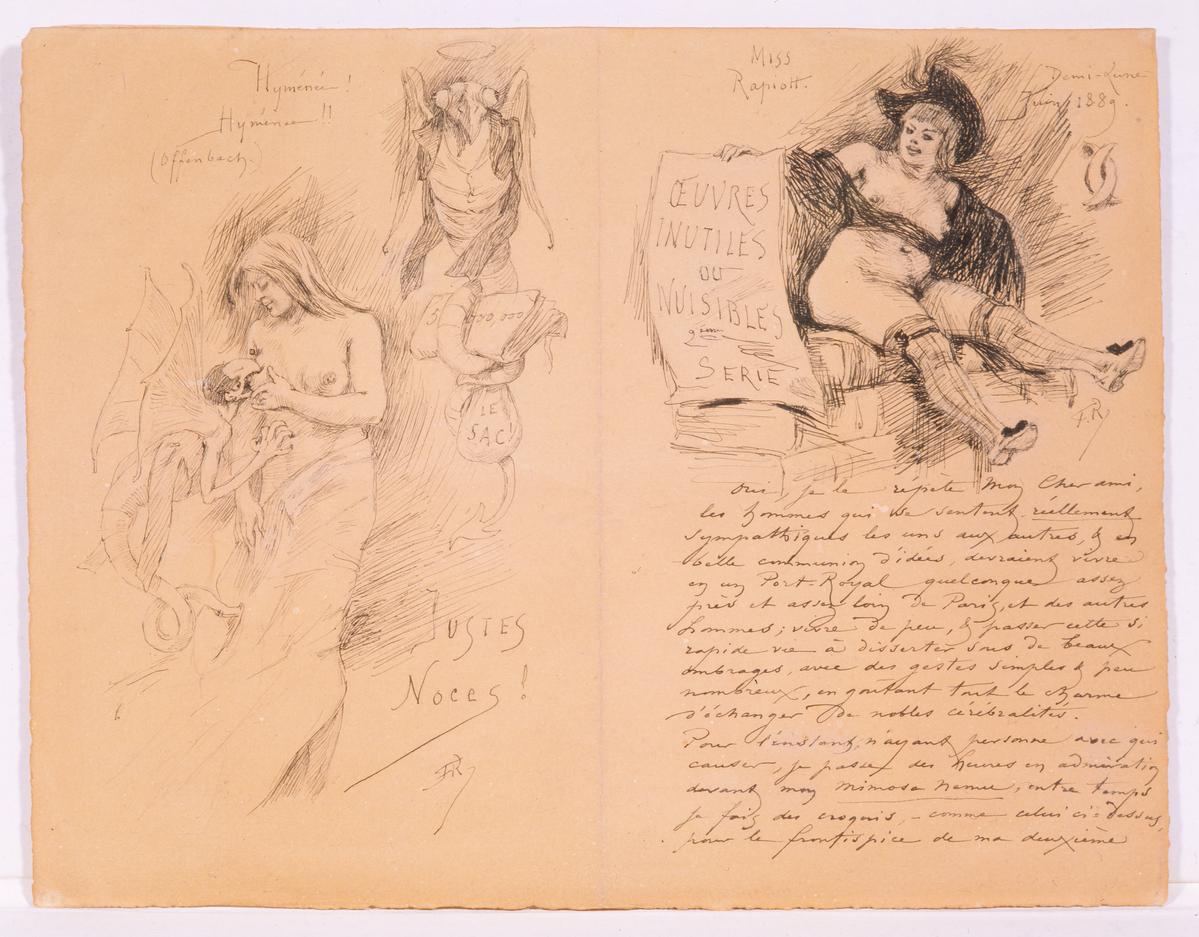 Hyménée!
Hyménée!!
(Offenbach.)
LE
SAC!
JUSTES
NOCES!
FR
Miss
Rapiott.
Demi-Lune
Juin 1889.
ŒUVRES
INUTILES
OU
NUISIBLES
2ème
SERIE
F.R
Oui, je le répète mon Cher ami,
les hommes qui se sentent réellement
sympathiques les uns aux autres, & en
belle communion d'idées, devraient vivre
en un Port-Royal quelconque, assez
près et assez loin de Paris, et des autres
hommes; vivre de peu, & passer cette si
rapide vie à disserter sous de beaux
ombrages, avec des gestes simples & peu
nombreux, en goûtant tout le charme
d'échanger de nobles cérébralités.
Pour l'instant, n'ayant personne avec qui
causer, je passe des heures en admiration
devant mon Mimosa Nemu, entre temps
je fais des croquis, - comme celui ci-dessus,
pour le frontispice de ma deuxième